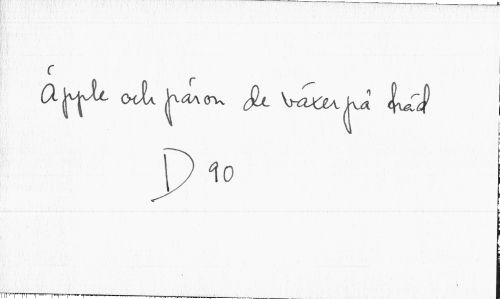 Äpple och päron de växer på träd
D 90